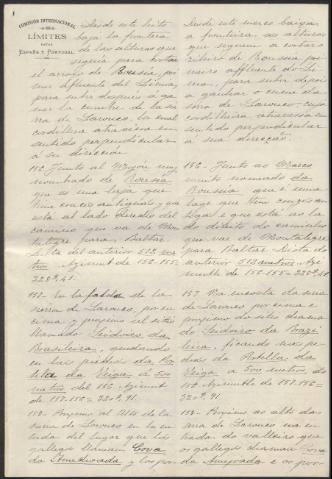 COMISION INTERNACIONAL
DE
LÍMITES
ENTRE
ESPAÑA Y PORTUGAL
Desde este hito
baja la frontera
de las alturas que
seguia para
el arroyo de Rousia, pri-
mer afluente del
para subir despues á ga-
nar la cumbre de la sier-
ra de Larouco, la cual
cordillera atraviesa en
sentido perpendicular
á su direccion.
156- Junto al muy
nombrado de Rousia
que es una laja que
tiene cruces antiguas y que
está al lado derecho del
camino que va de Mon-
talegre para Baltar.
Dista del anterior 212 me-
tros. Azimut de 156-155=
220º,45
157- En la falda de la
sierra de Larouco, por en-
cima y proximo al sitio
llamado
Brasileira, quedando
en las piedras da Ro-
tella da Veiga á 500
metros del 156 Azimut
de 157-156= 220º,91.
158- Proximo al Alto de la
sierra de Larouco en la en-
trada del lugar que los
gallegos llaman Cova
da Ameijoada y los por-
Desde este marco baixa
a fronteira as alturas
que seguem a
ribeiro de Roussia, pri-
meiro affluente do
para subir depois
a ganhar o cume da
serra de Larouco, cuja
cordilheira atravessa em
sentido perpendicular
á sua direcção.
156- Junto ao Marco
muito nomeado da
Roussia que é uma
lage que tem cruzes an-
tigas e que está ao la-
do direito do caminho
que vae de Montalegre
para Baltar. Dista do
anterior 212 metros. Azi-
muth de 156-155= 220º,45
157- Na encosta da serra
de Larouco por cima e
proximo do sitio
da Brazi-
leira, ficando nas pe-
dras da Rotella da
Veiga a 500 metros do
156 Azimuth de 157-156=
220º,91.
158- Proximo ao alto da
serra de Larouco na en-
trada do valleiro que
os gallegos chamam Cova
da Ameijoada e os por-